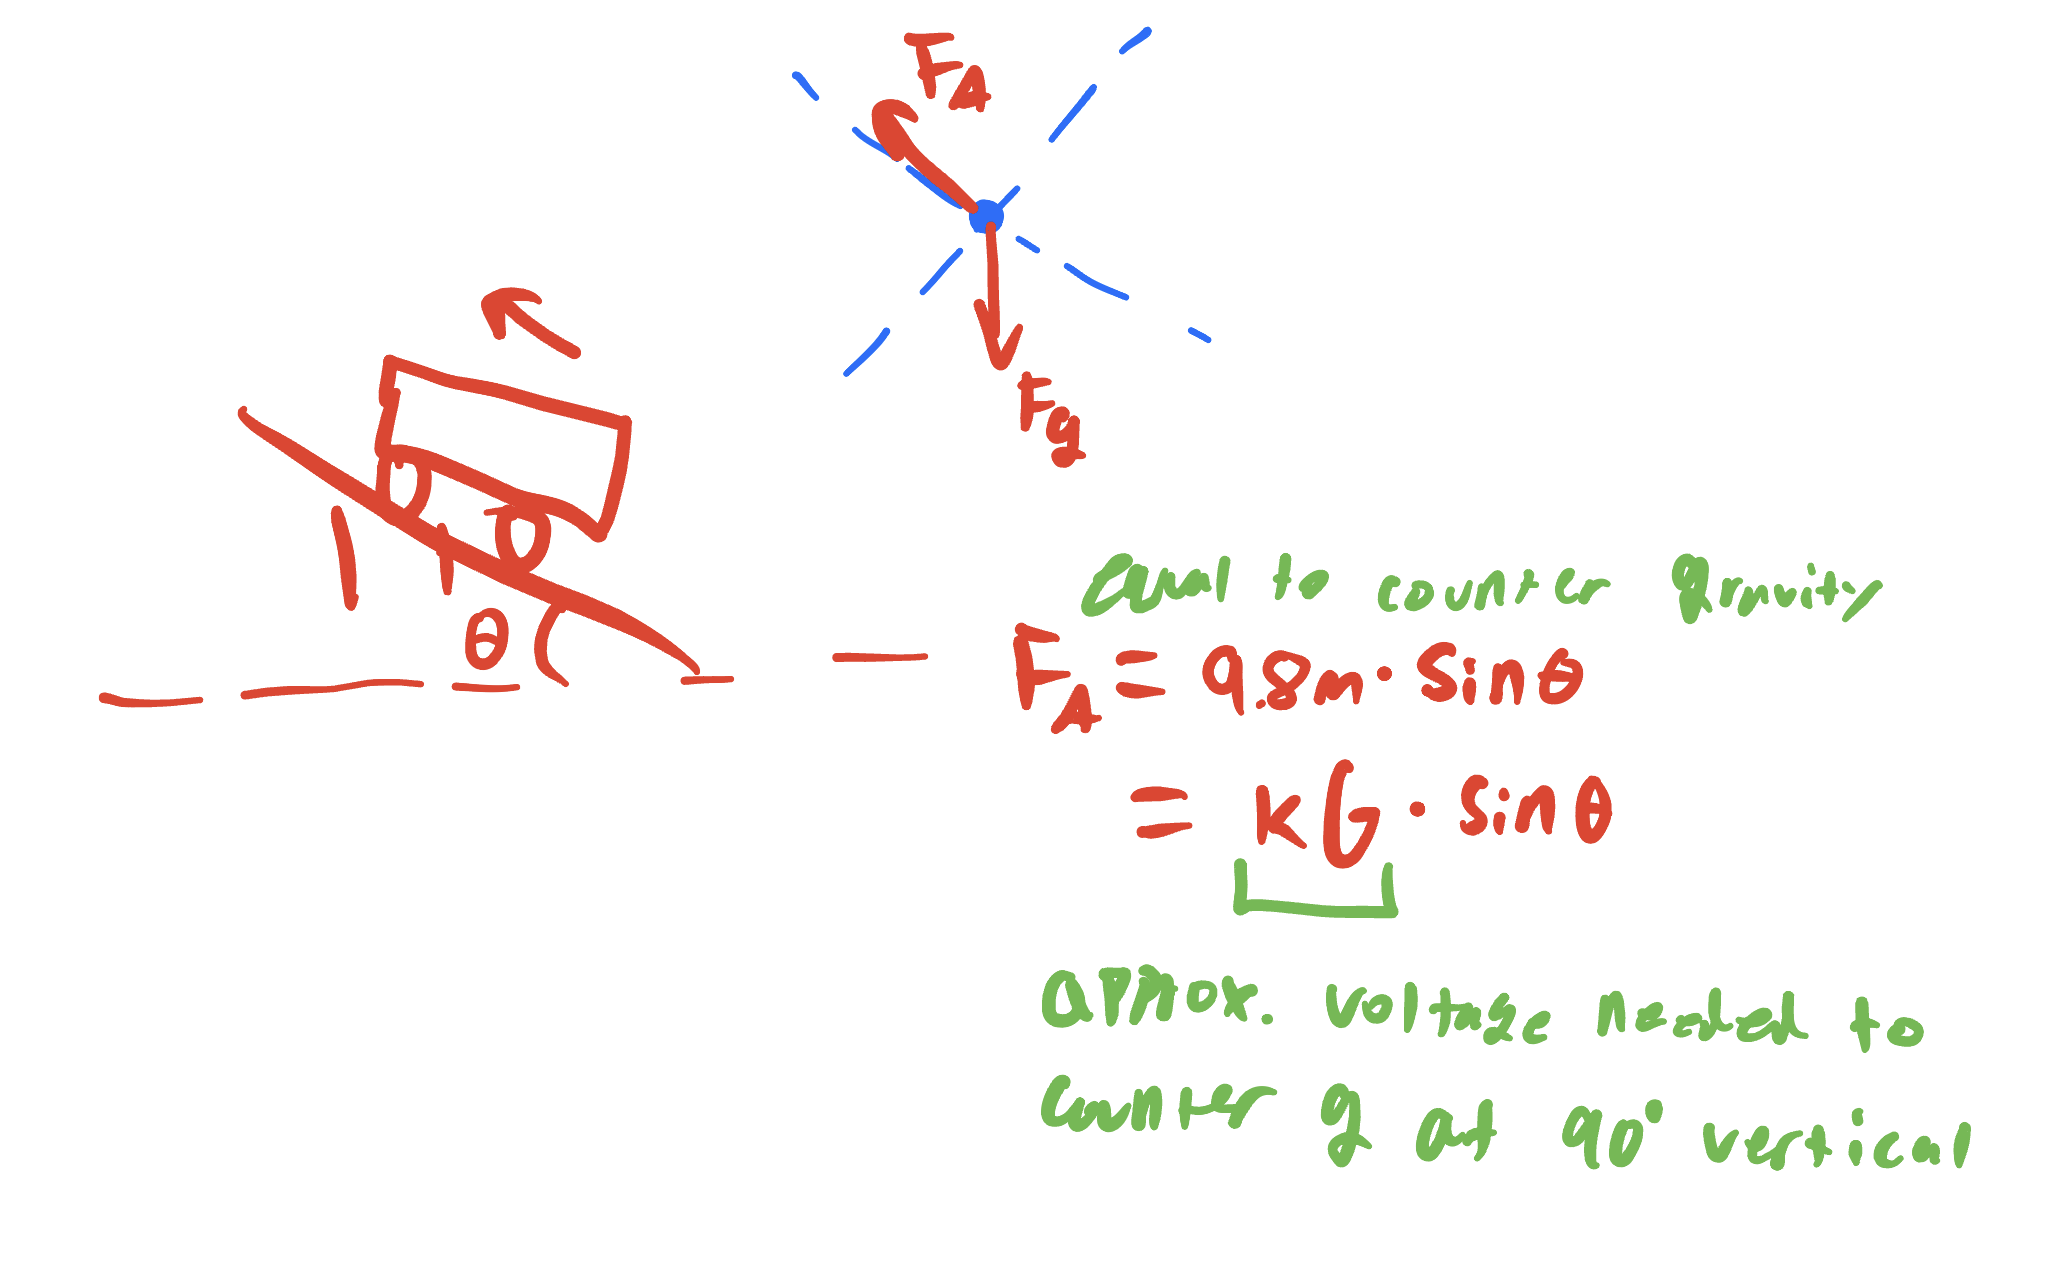 F_A
F_g
θ
equal to counter gravity
F_A = 9.8m · sinθ
= KG · sinθ
approx. voltage needed to
counter g at 90° vertical